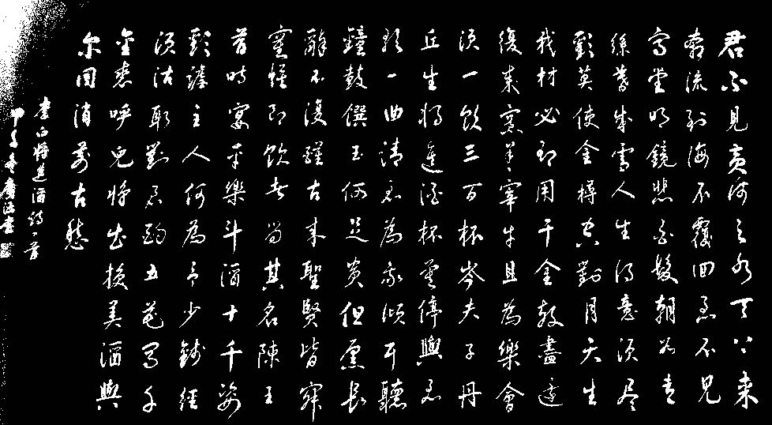 君不見黃河之水天上來
奔流到海不覆回君不見
高堂明鏡悲白髮朝如青
絲暮成雪人生得意須尽
歡莫使金樽空對月天生
我材必有用千金散盡還
復來烹羊宰牛且為樂會
須一飲三百杯岑夫子丹
丘生將進酒杯莫停與君
歌一曲請君為我傾耳聽
鐘鼓饌玉何足貴但願長
醉不復醒古來聖賢皆寂
寞惟有飲者留其名陳王
昔時宴平樂斗酒十千恣
歡謔主人何為言少錢徑
須沽取對君酌五花馬千
金裘呼兒將出換美酒與
尔同消萬古愁
李白將進酒詩一首
甲子冬書